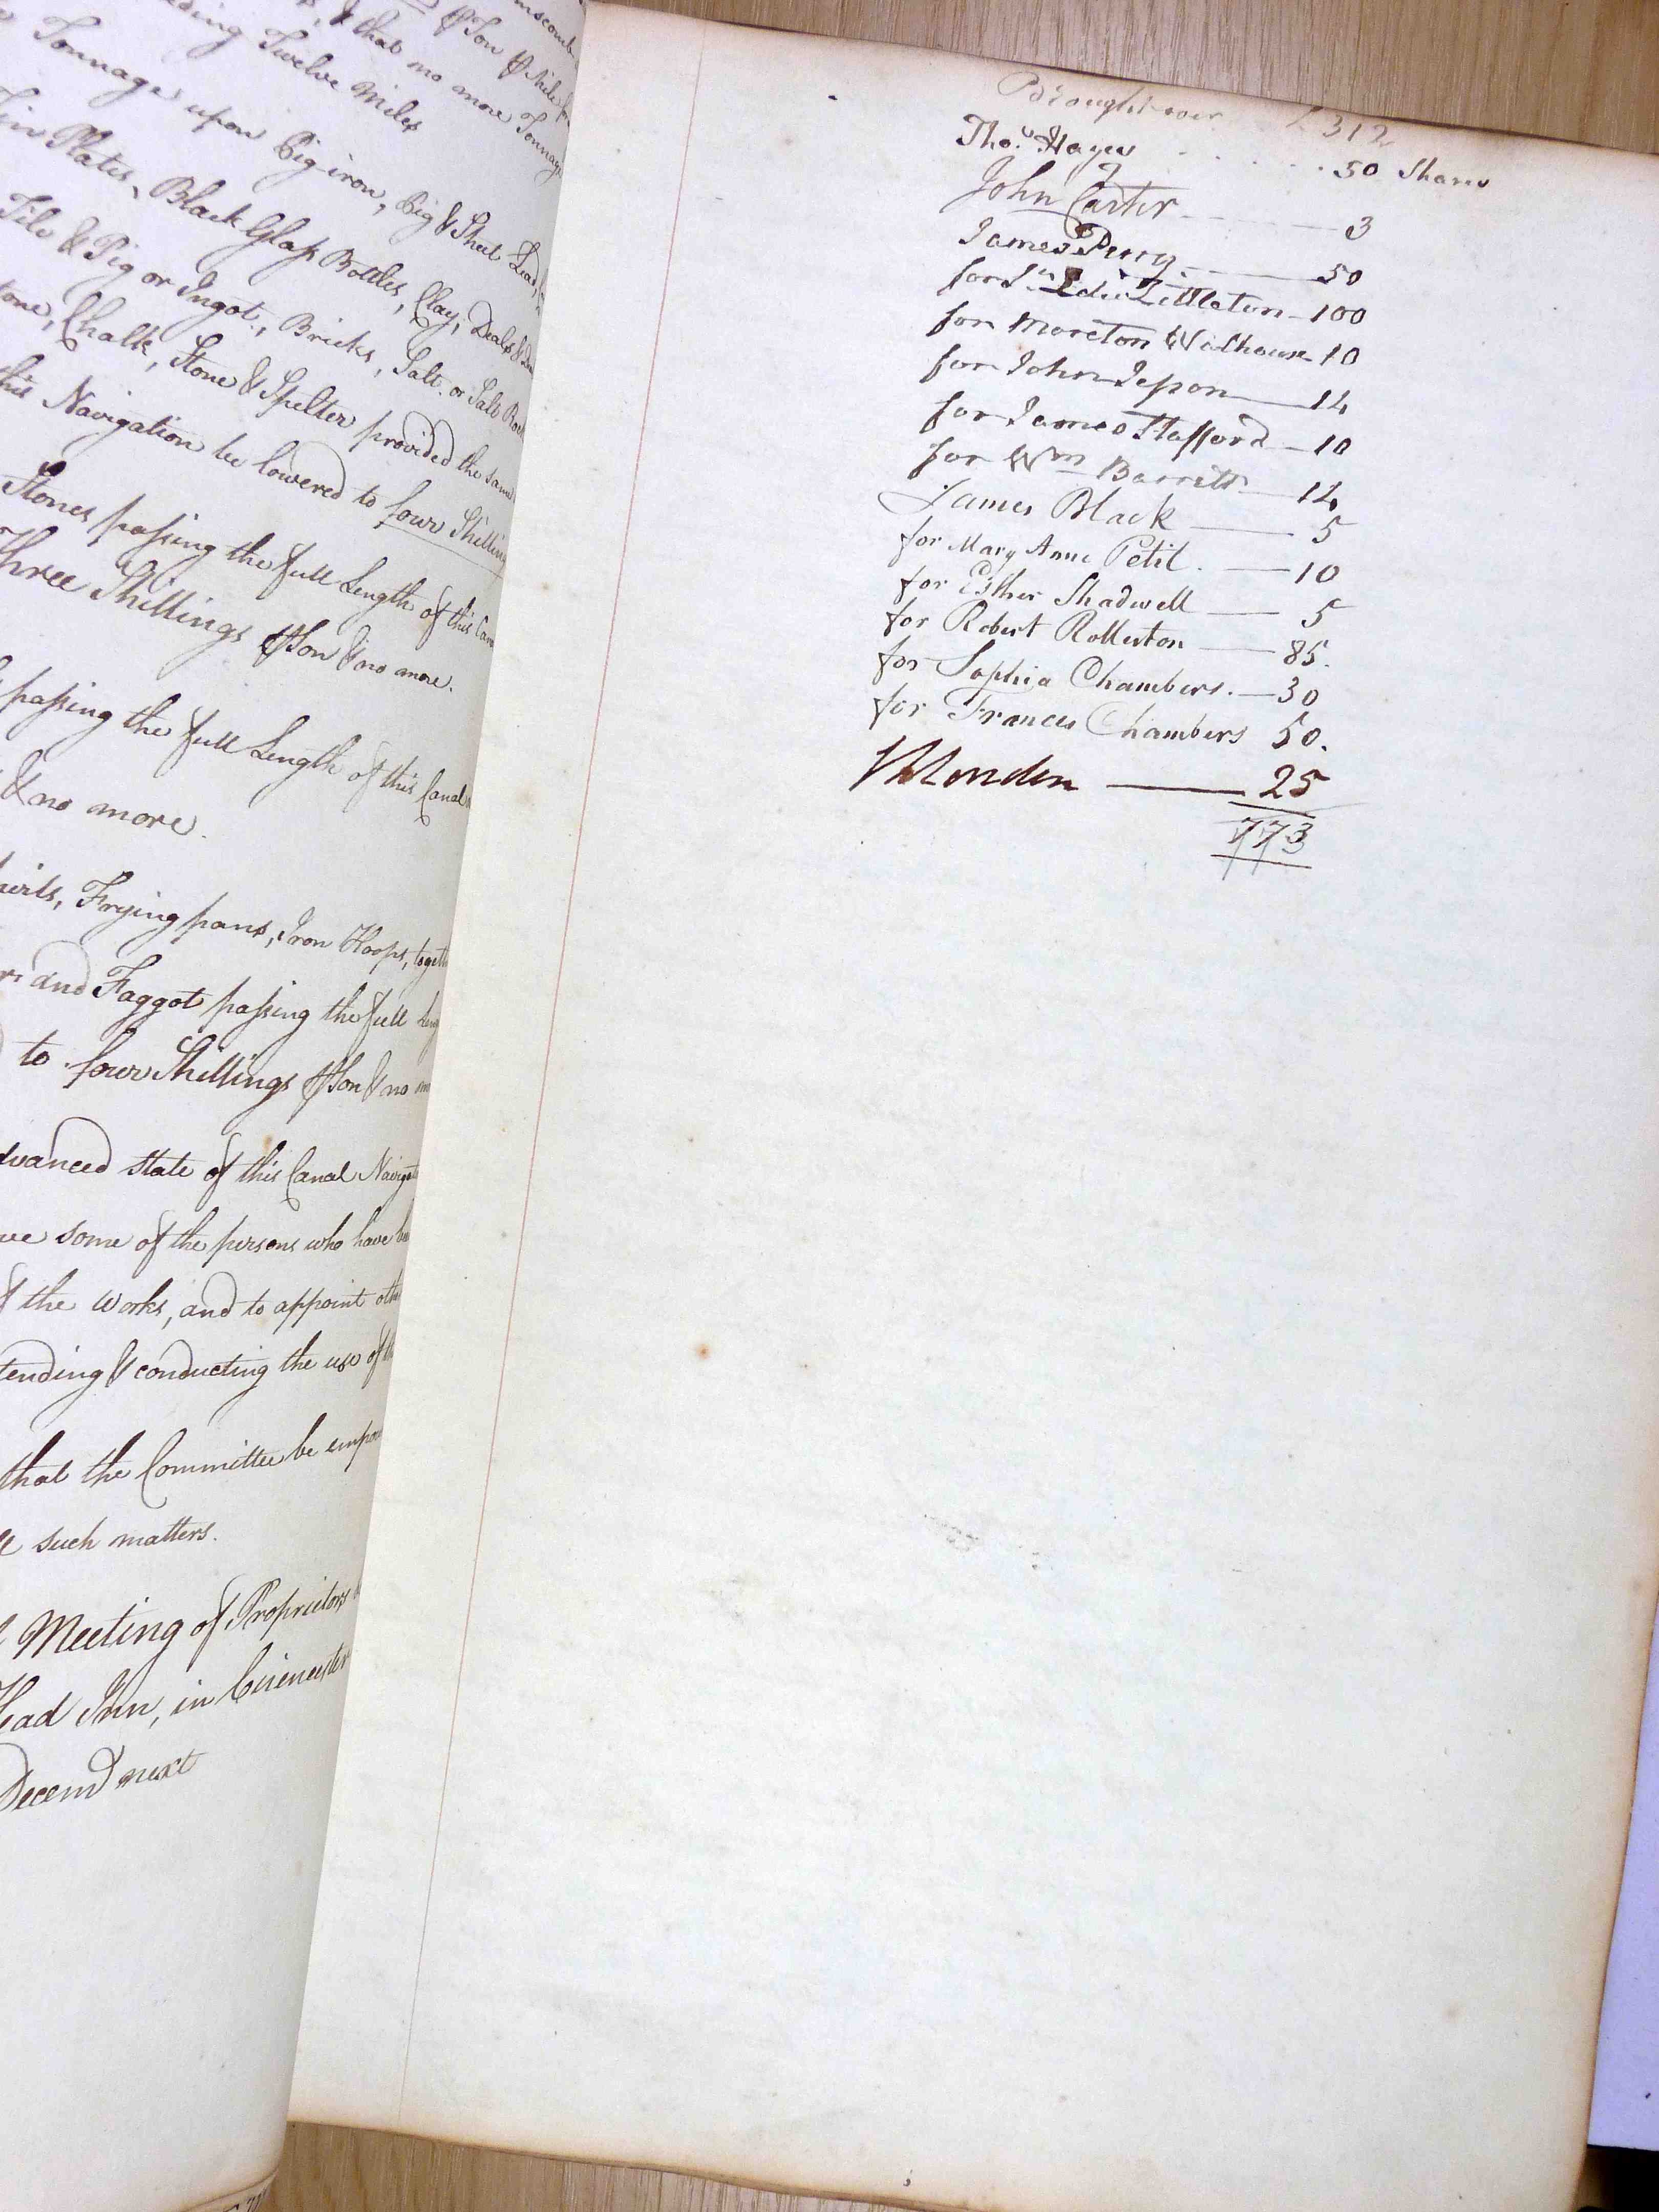 & that no more Tonnage
Twelve Miles
Tonnage upon Pig-iron, Pig & Sheet Lead,
Tin Plates, Black Glass Bottles, Clay, Deals &
Tile & Pig or Ingot, Bricks, Salt or Salt Rock
Chalk, Stone & Spelter provided the same
Navigation be lowered to four Shillings
Stones passing the full Length of this Canal
Three Shillings ⅌ Ton & no more.
passing the full Length of this Canal
& no more.
Frying pans, Iron Hoops, togeth
and Faggot passing the full Leng
to four Shillings ⅌ Ton & no m
dvanced state of this Canal Navigat
some of the persons who have be
the Works, and to appoint oth
tending & conducting the use of th
that the Committee be empow
such matters.
Meeting of Proprietors
Head Inn, in Cirencester
Decemr next
Brought over £ 312
Thos. Hayes . . . . . . 50 Shares
John Carter — 3
James Perry — 50
for Sr. Edw. Littleton — 100
for Moreton Walhouse — 10
for John Jesson — 14
for James Stafford — 10
for Wm Barrett — 14
James Black — 5
for Mary Anne Petit . — 10
for Esther Shadwell — 5
for Robert Rolleston — 85.
for Sophia Chambers. — 30
for Frances Chambers 50.
— 25
773